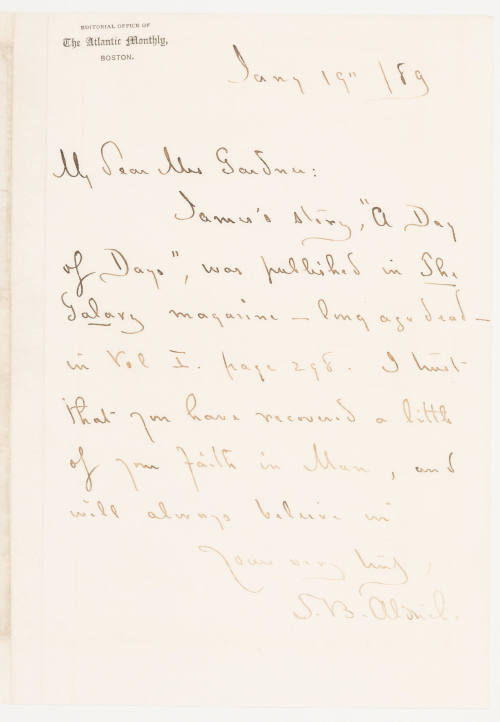 EDITORIAL OFFICE OF
The Atlantic Monthly,
BOSTON.
Jany 19th /89
My dear Mrs Gardner:
James's story, "A Day
of Days", was published in The
Galaxy magazine — long ago dead —
in Vol I. page 298. I trust
that you have recovered a little
of your faith in Man, and
will always believe in
Yours very truly,
T. B. Aldrich.